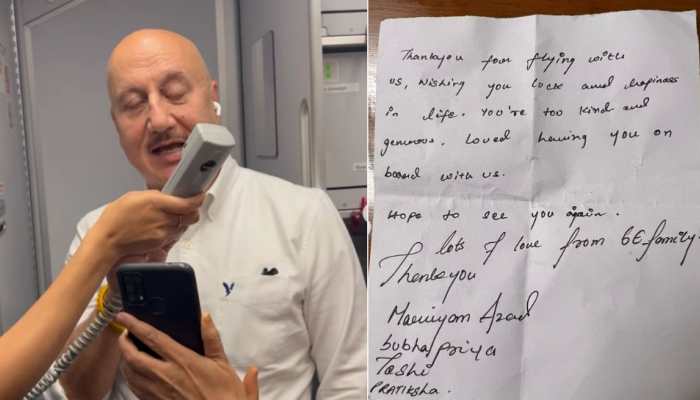 Thankyou for flying with
us, Wishing you luck and happiness
in life. You're too kind and
generous. Loved having you on
board with us.
Hope to see you again.
lots of love from 6E family.
Thankyou
Mariyam Azad
Subhapriya
Tashi
PRATIKSHA.